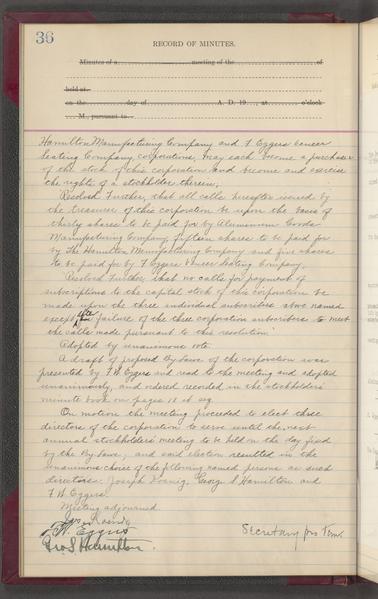 36
RECORD OF MINUTES.
Minutes of a meeting of the of
held at
on the day of A. D. 19 , at o'clock
M., pursuant to
Hamilton Manufacturing Company and F. Eggers Veneer
Seating Company, corporations, may each become a purchaser
of the stock of this corporation and become and exercise
the rights of a stockholder therein;
Resolved Further, that all calls hereafter issued by
the treasurer of this corporation be upon the basis of
thirty shares to be paid for by Aluminum Goods
Manufacturing Company, fifteen shares to be paid for
by The Hamilton Manufacturing Company and five shares
to be paid for by F Eggers Veneer Seating Company.
Resolved Further, that no calls for payment of
subscriptions to the capital stock of this corporation be
made upon the three individual subscribers above named
except after failure of the three corporation subscribers to meet
the calls made pursuant to this resolution.
Adopted by unanimous vote.
A draft of proposed By-laws of the corporation was
presented by F. W. Eggers and read to the meeting and adopted
unanimously, and ordered recorded in the stockholders'
minute book on pages 18 et seq.
On motion the meeting proceeded to elect three
directors of the corporation to serve until the next
annual stockholders' meeting to be held on the day fixed
by the By-laws, and said election resulted in the
unanimous choice of the following named persons as such
directors: Joseph Koenig, George S Hamilton and
F. W. Eggers.
Meeting adjourned.
Jos Koenig
F. W. Eggers Secretary pro Tem.
Geo S Hamilton.